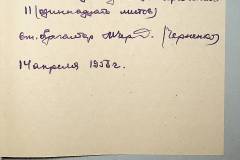 11 (одиннадцать листов)
ст. бухгалтер (Черненко)
14 апреля 1956 г.